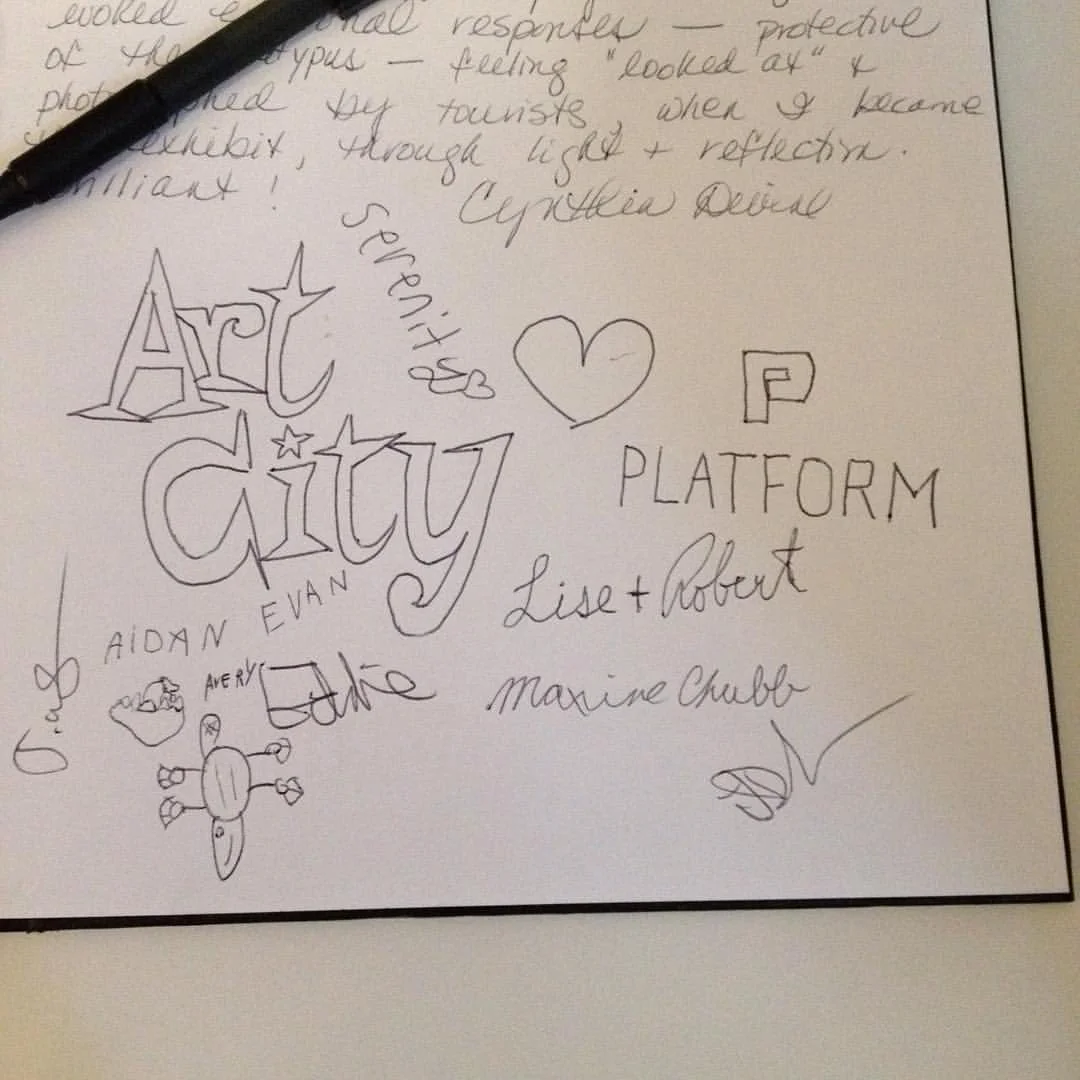 evoked responses — protective
of the — feeling "looked at" &
by tourists, when I became
exhibit, through light + reflection.
brilliant! Cynthia
Serenity
Art
City
P
PLATFORM
Lise + Robert
AIDAN EVAN
AVERY Eddie
Maxine Chubb